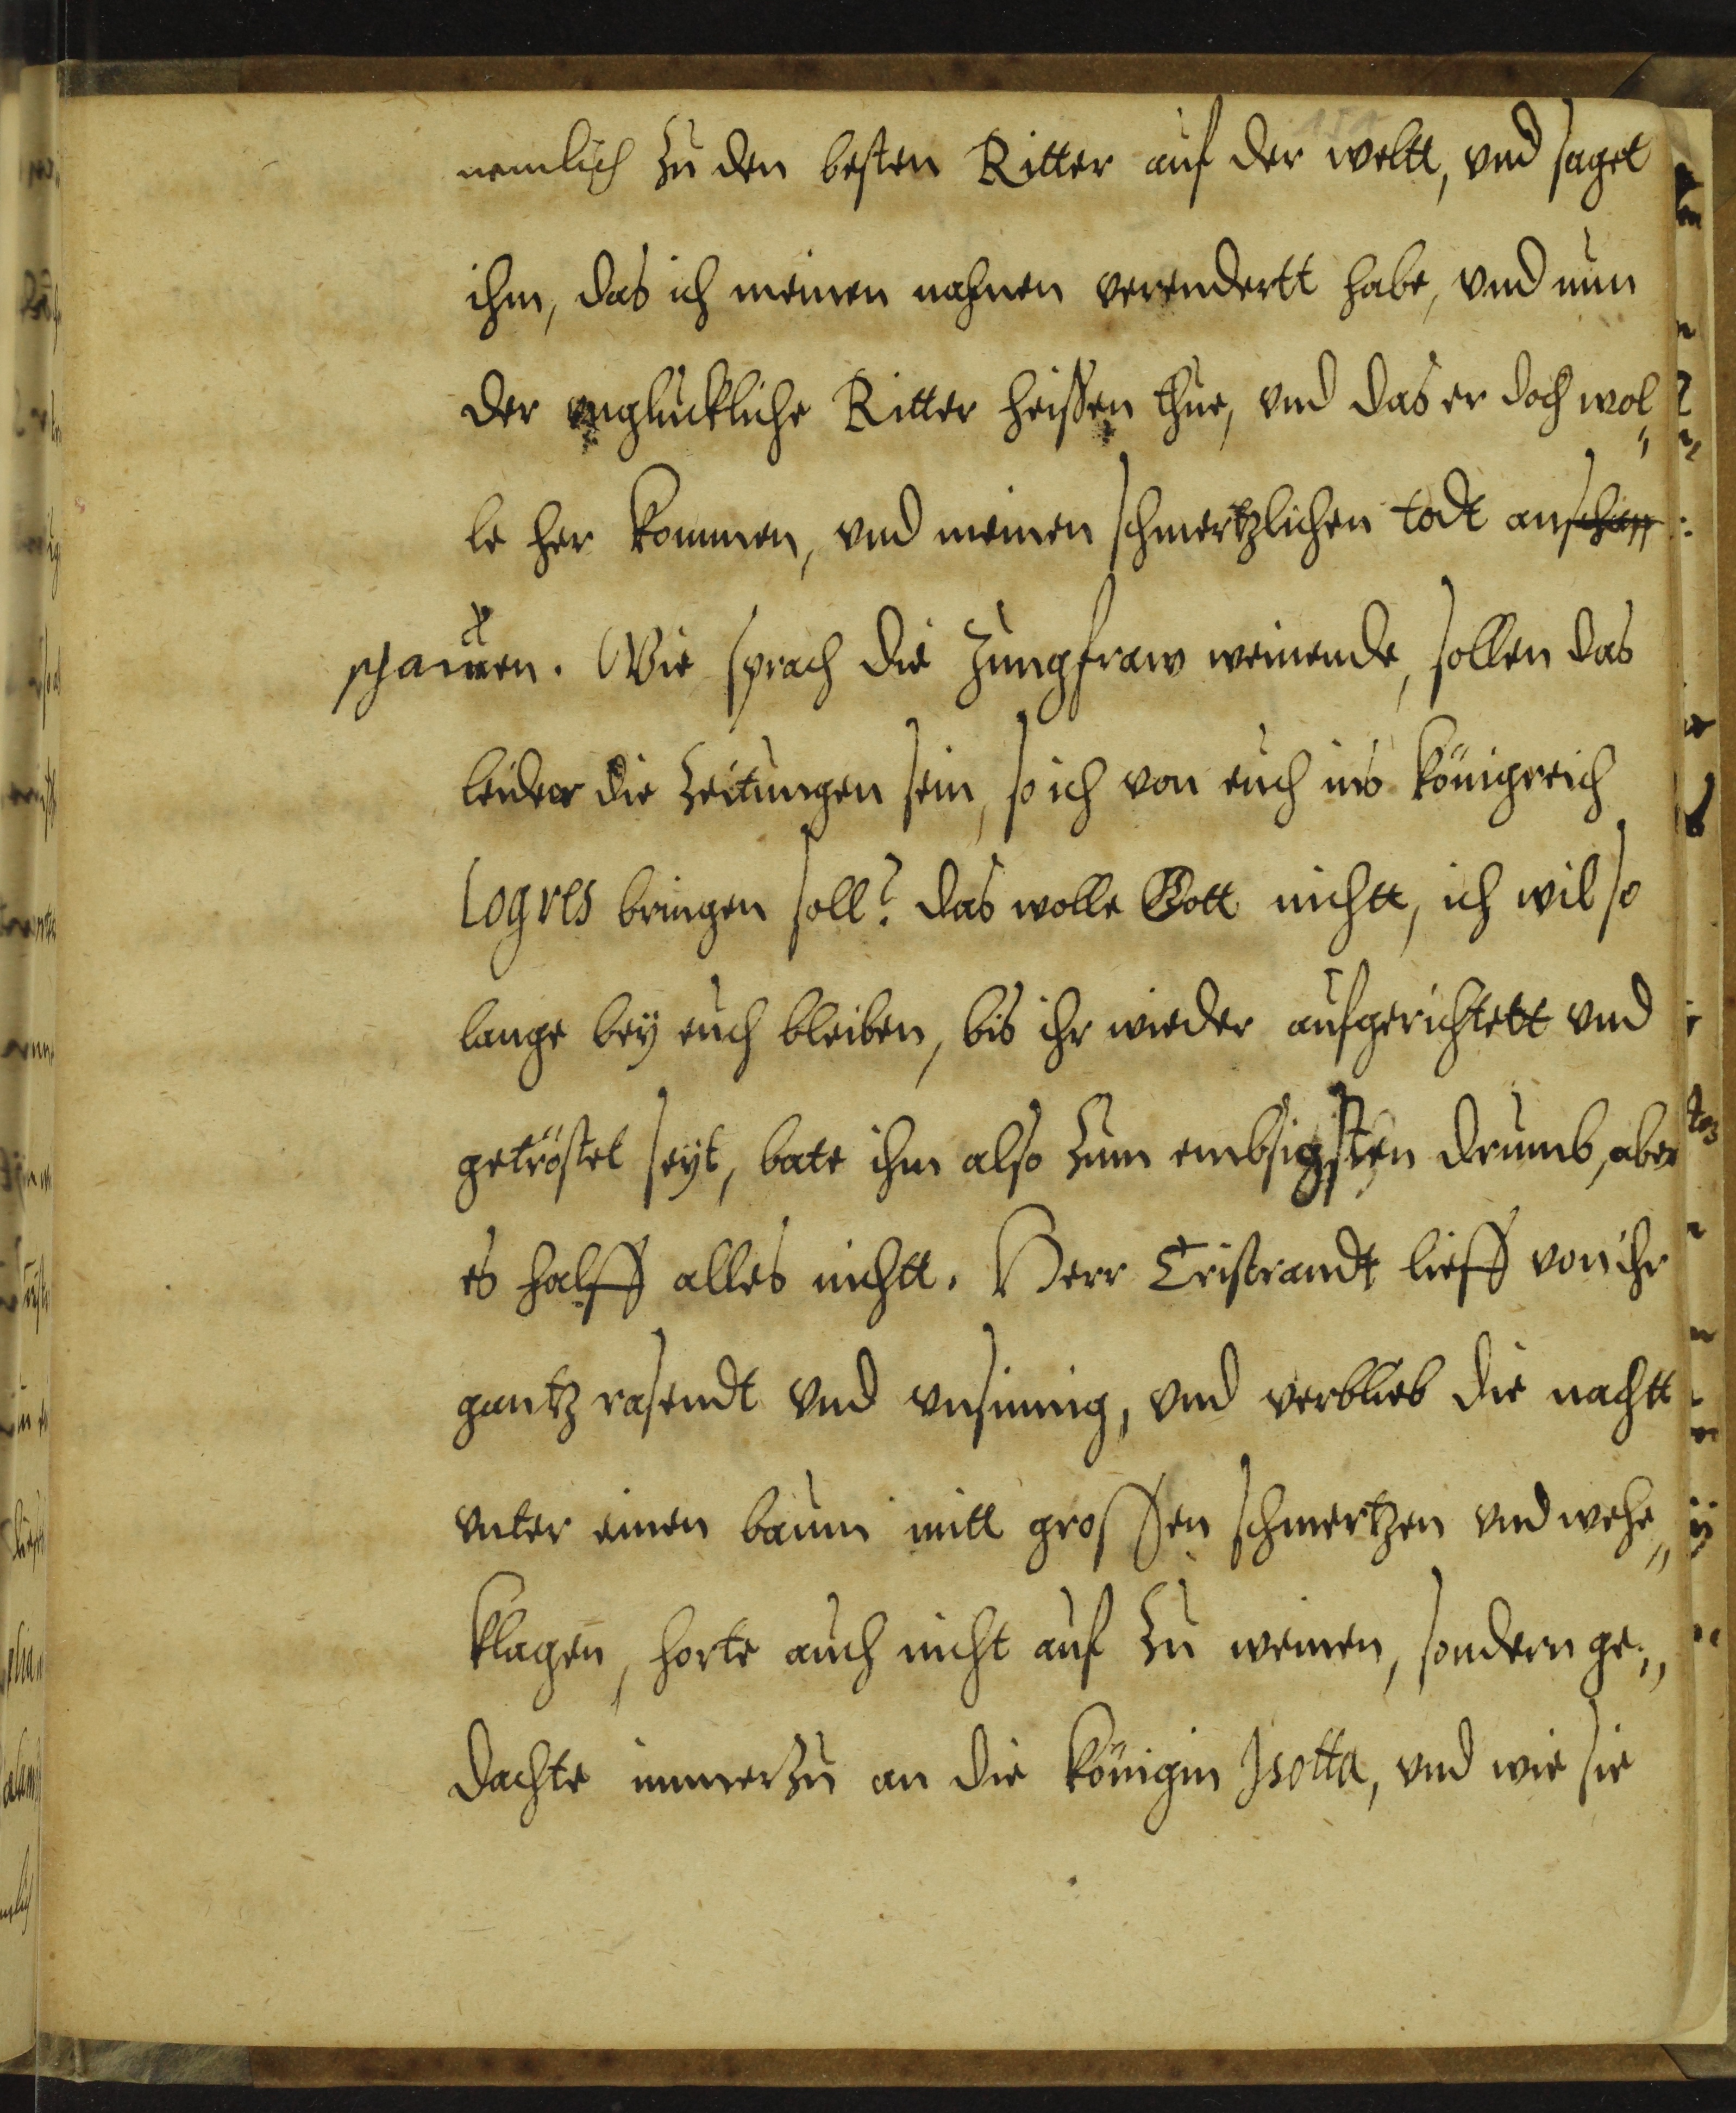 151
nemlich zu den besten Ritter auf der weltt, und saget
ihm, das ich meinen nahmen verendertt habe, und nun
der ungluckliche Ritter heissen thue, und das er doch wol„
le her kommen, und meinen schmertzlichen todt anschaw
schauen. Wie sprach die Jungfraw weinende, sollen das
leider die Zeitungen sein, so ich von euch ins Königreich
Logres bringen soll? das wolle Gott nichtt, ich wil so
lange bey euch bleiben, bis ihr wieder aufgerichtett und
getröstet seyt, bate ihm also zum embsigsten drumb, aber
es halff alles nichtt. Herr Tristrandt lieff von ihr
gantz rasendt und unsinnig, und verblieb die nachtt
unter einen baum mitt grossen schmertzen und wehe„
klagen, horte auch nicht auf zu weinen, sondern ge„
dachte immerzu an die Königin Isotta, und wie sie